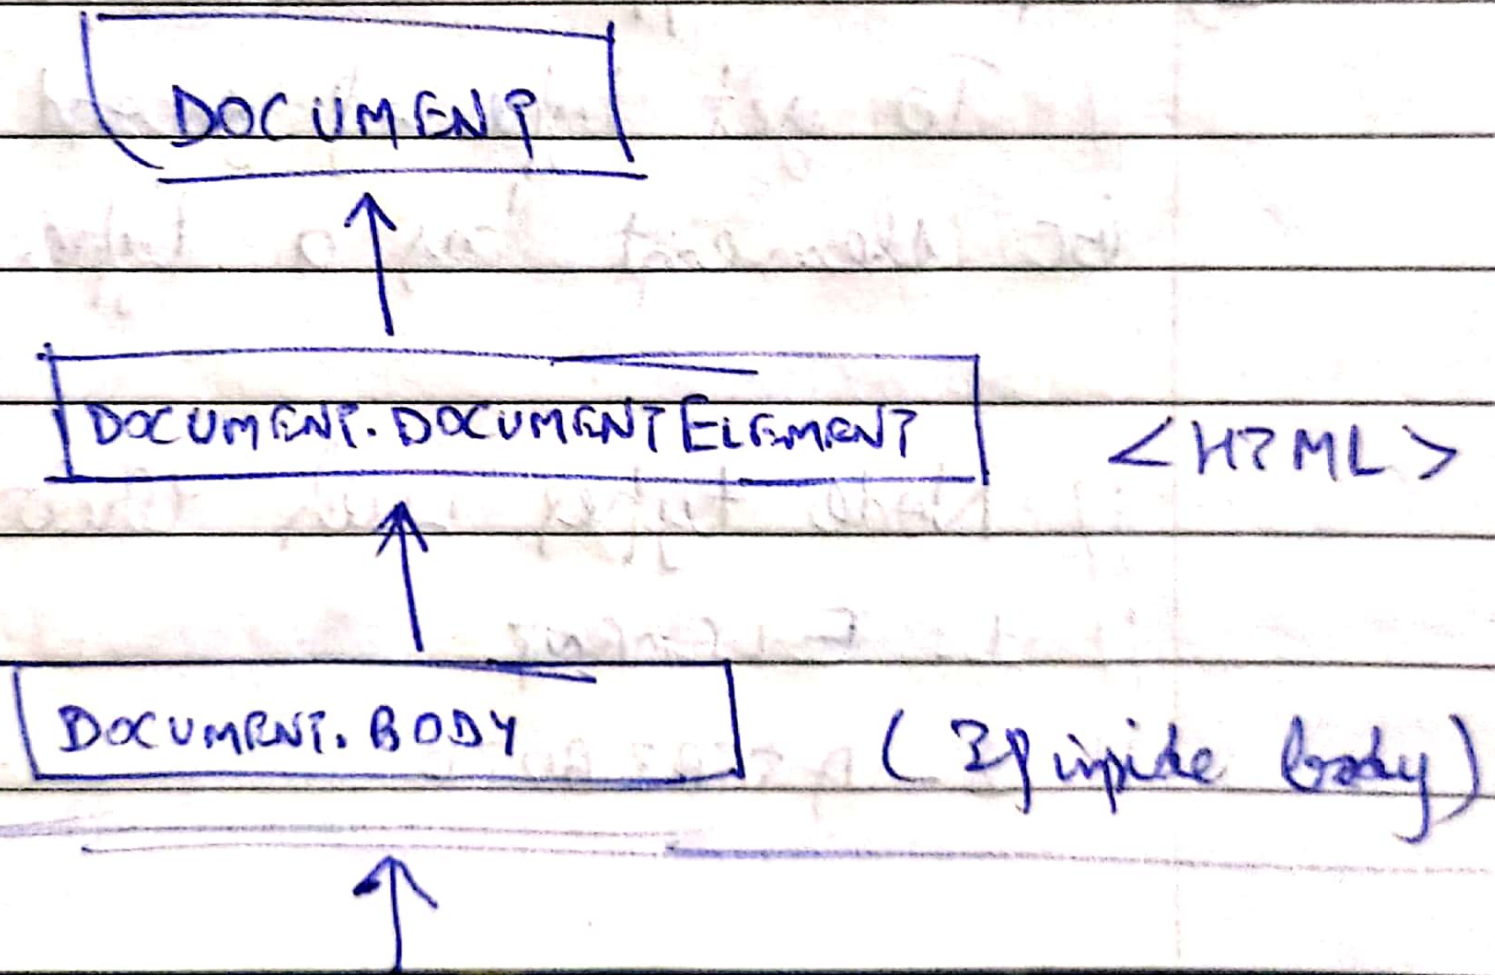 DOCUMENT
DOCUMENT.DOCUMENTELEMENT <HTML>
DOCUMENT.BODY (If inside body)